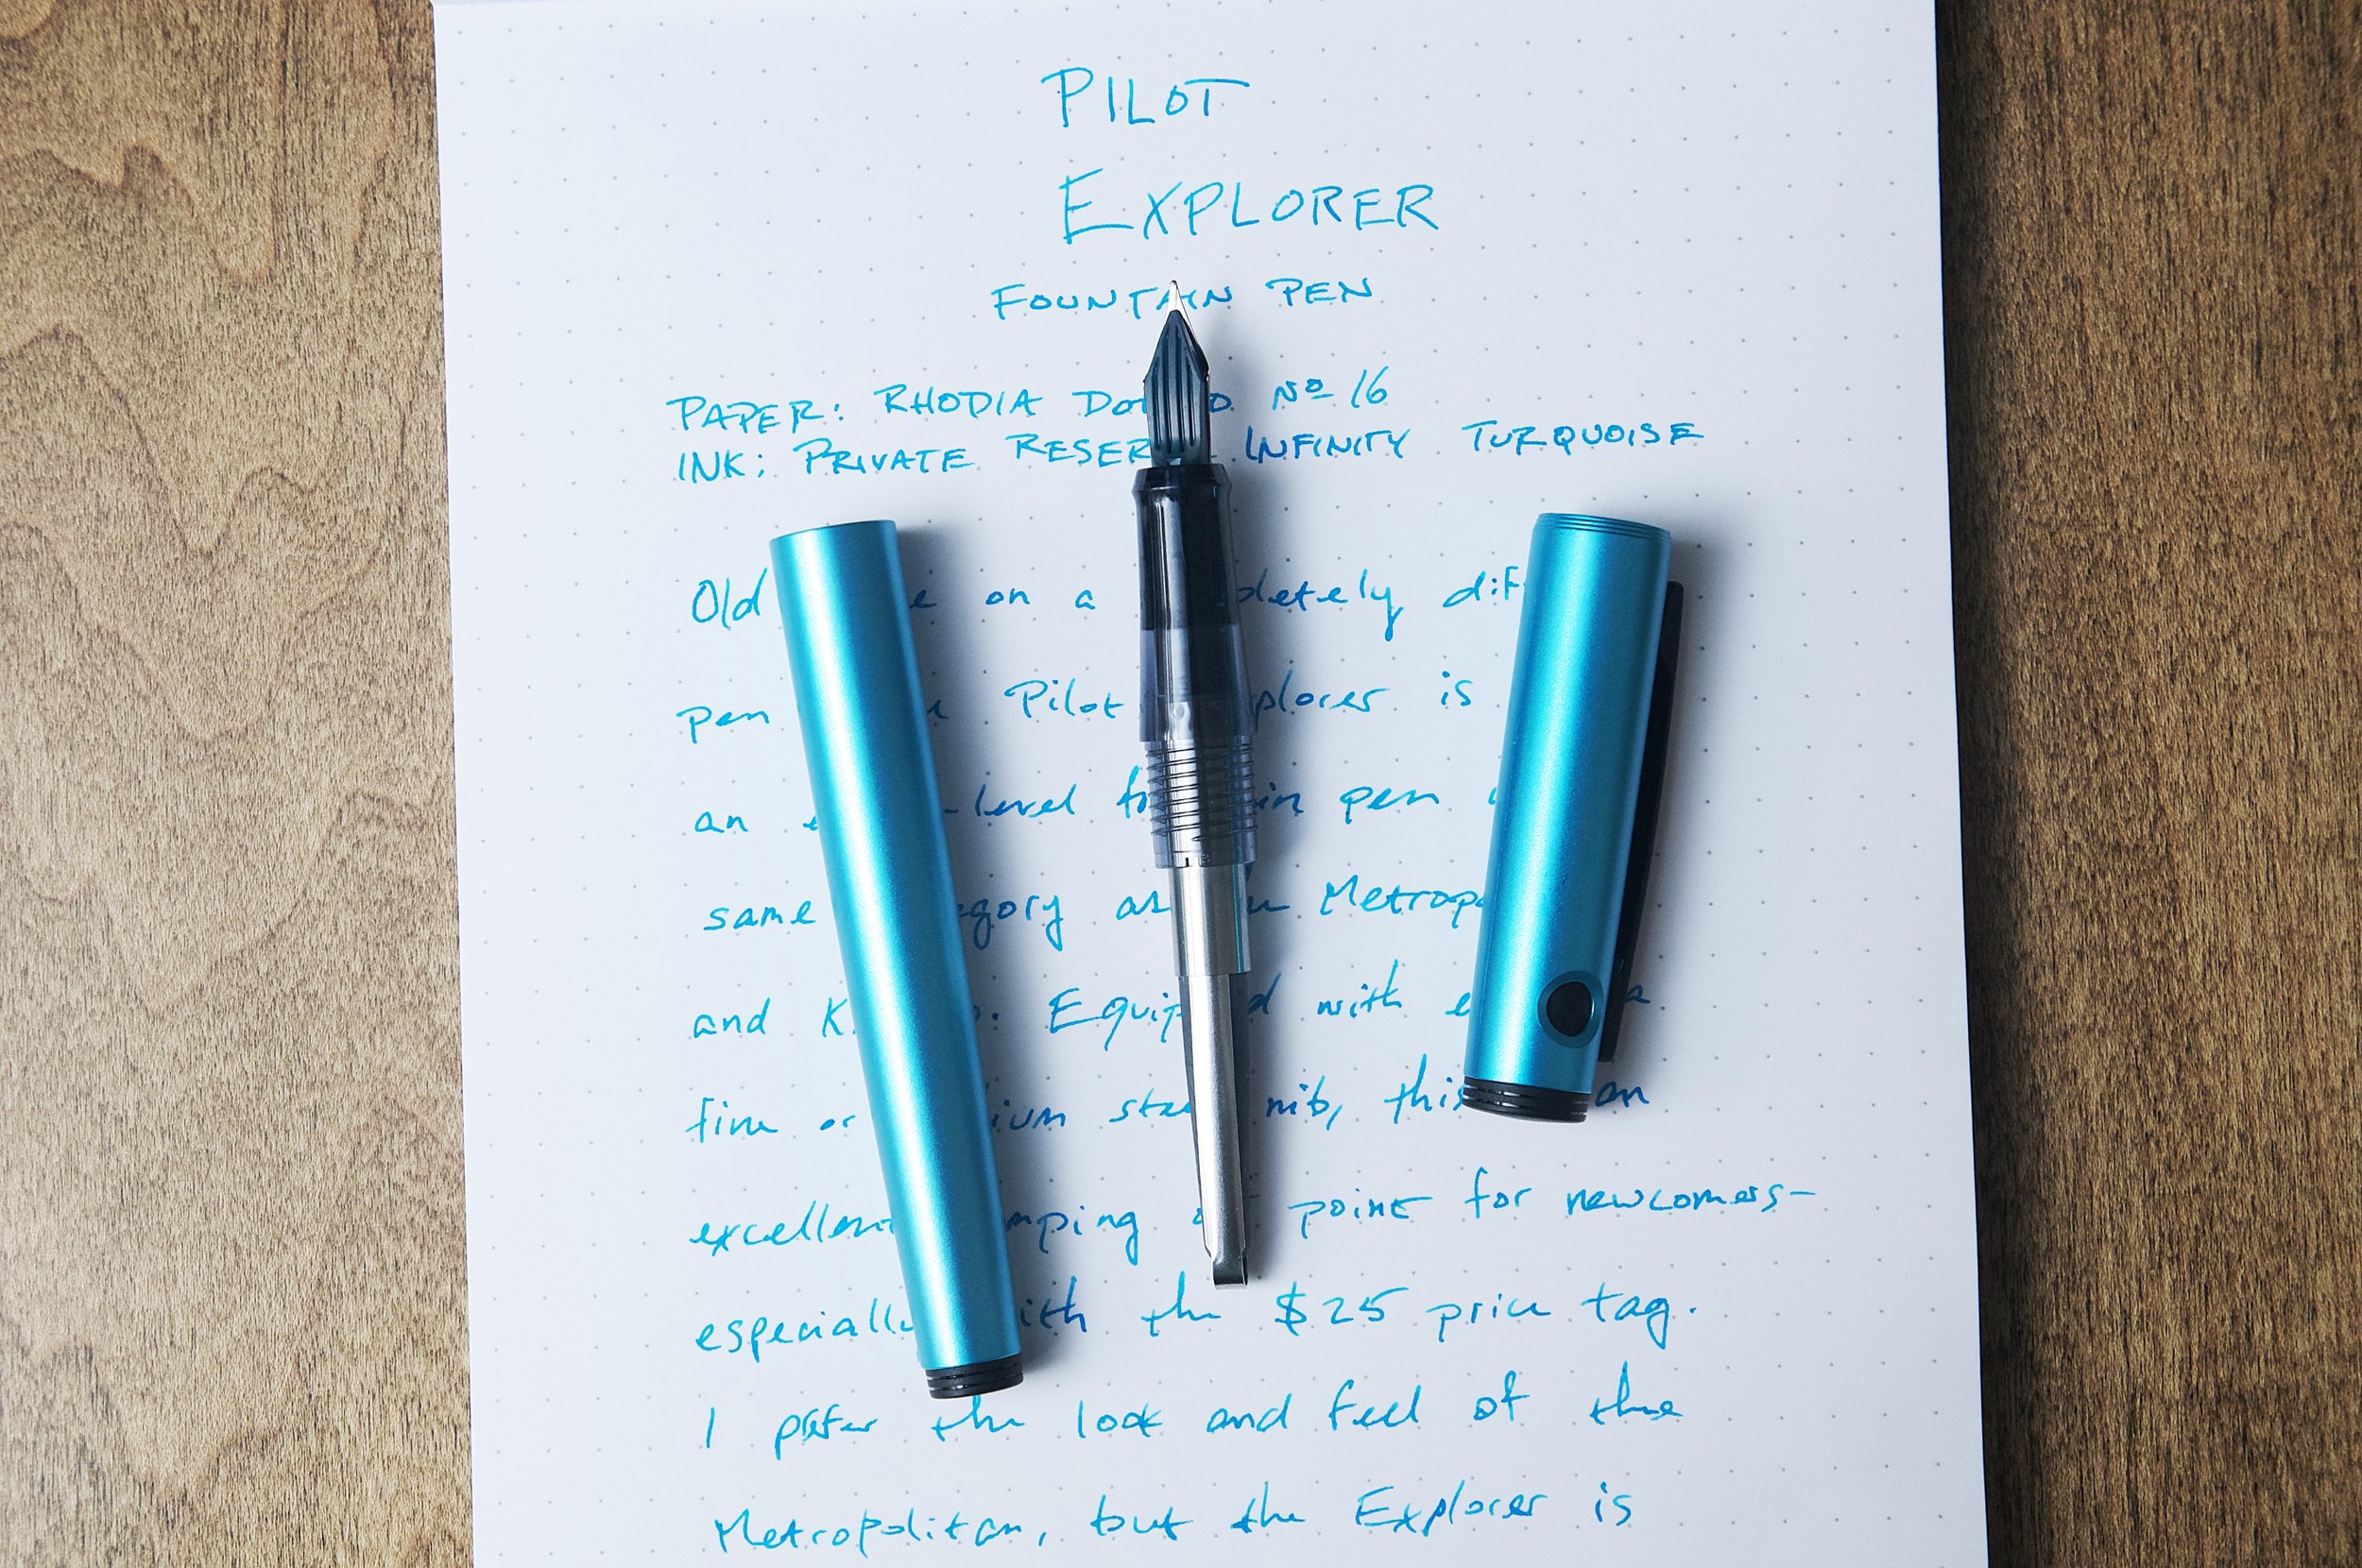 PILOT
EXPLORER
FOUNTAIN PEN
PAPER: RHODIA No 16
INK: PRIVATE RESERVE INFINITY TURQUOISE
Old on a completely
pen Pilot Explorer is
an -level fountain pen
same category as the
and Equipped with a
fine or medium steel nib, this an
excellent jumping off point for newcomers—
especially with the $25 price tag.
I prefer the look and feel of the
Metropolitan, but the Explorer is